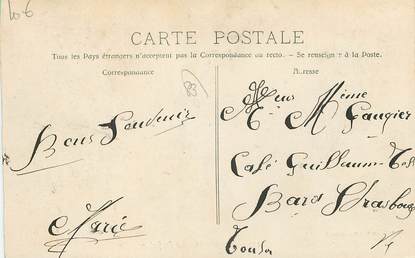 10 €
CARTE POSTALE
Tous les Pays étrangers n'acceptent pas la Correspondance au recto. - Se renseigner à la Poste.
Correspondance
Adresse
83
Bons Souvenir
Marie
Mime Gaugier
Café Guillaume-Tell
Bard Strasbourg
Toulon